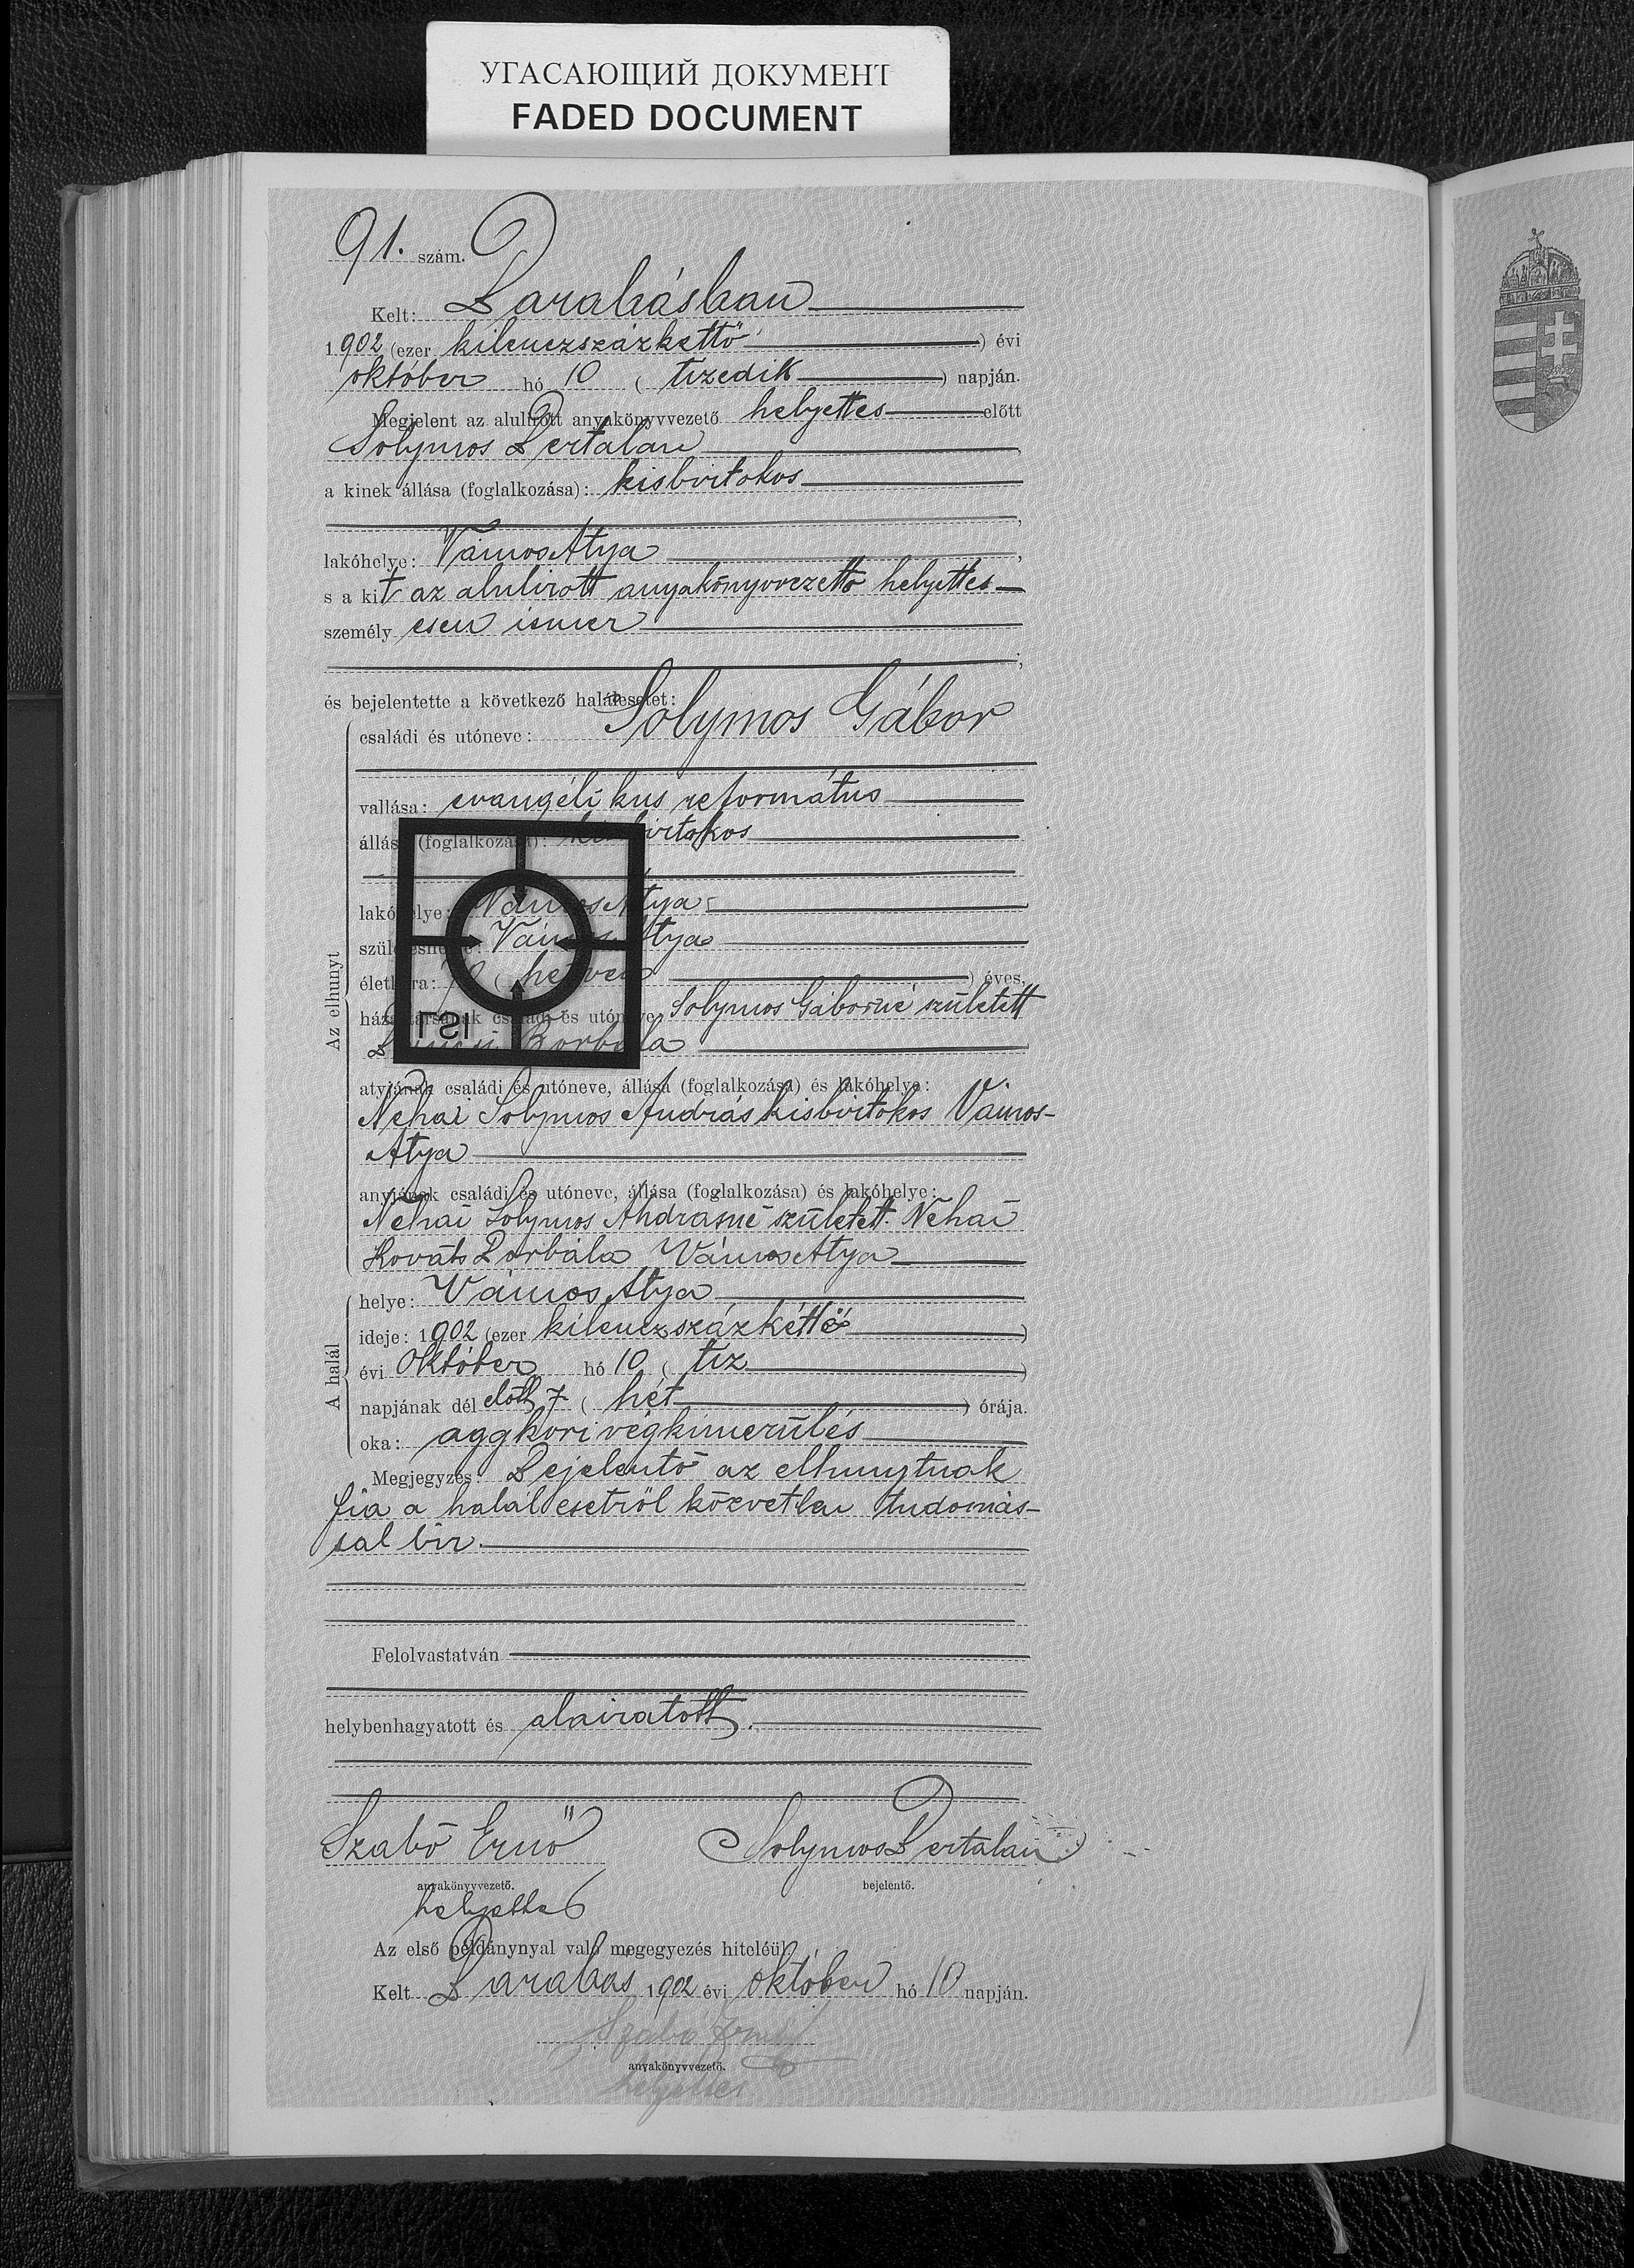 УГАСАЮЩИЙ ДОКУМЕНТ
FADED DOCUMENT
91. szám.
Kelt: Barabásban
1902 (ezer kilenczszázkettő) évi
október hó 10 (tizedik) napján.
Megjelent az alulirott anyakönyvvezető helyettes előtt
Solymos Bertalan,
a kinek állása (foglalkozása): kisbirtokos
lakóhelye: Vámos Atya,
s a kit az alulirott anyakönyvvezető helyettes
személyesen ismer
és bejelentette a következő halálesetet:
Az elhunyt
családi és utóneve: Solymos Gábor
vallása: evangélikus református
állása (foglalkozása): kisbirtokos
lakóhelye: Vámos Atya
születéshelye: Vámos Atya
életkora: 70 (hetven) éves,
házastársának családi és utóneve: Solymos Gáborné született
Borbála
atyjának családi és utóneve, állása (foglalkozása) és lakóhelye:
Néhai Solymos András kisbirtokos Vámos-
Atya
anyjának családi és utóneve, állása (foglalkozása) és lakóhelye:
Néhai Solymos Andrásné született Néhai
Kováts Borbála Vámos Atya
A halál
helye: Vámos Atya
ideje: 1902 (ezer kilenczszázkettő)
évi október hó 10 (tiz)
napjának dél előtt 7 (hét) órája.
oka: aggkori végkimerülés
Megjegyzés: Bejelentő az elhunytnak
fia a halálesetről közvetlen tudomás-
sal bir.
Felolvastatván
helybenhagyatott és alairatott.
Szabó Ernő
Solymos Bertalan
anyakönyvvezető.
bejelentő.
helyettes
Az első példánynyal való megegyezés hiteléül
Kelt Barabás 1902 évi október hó 10 napján.
Szabó Ernő
anyakönyvvezető.
helyettes
LSI